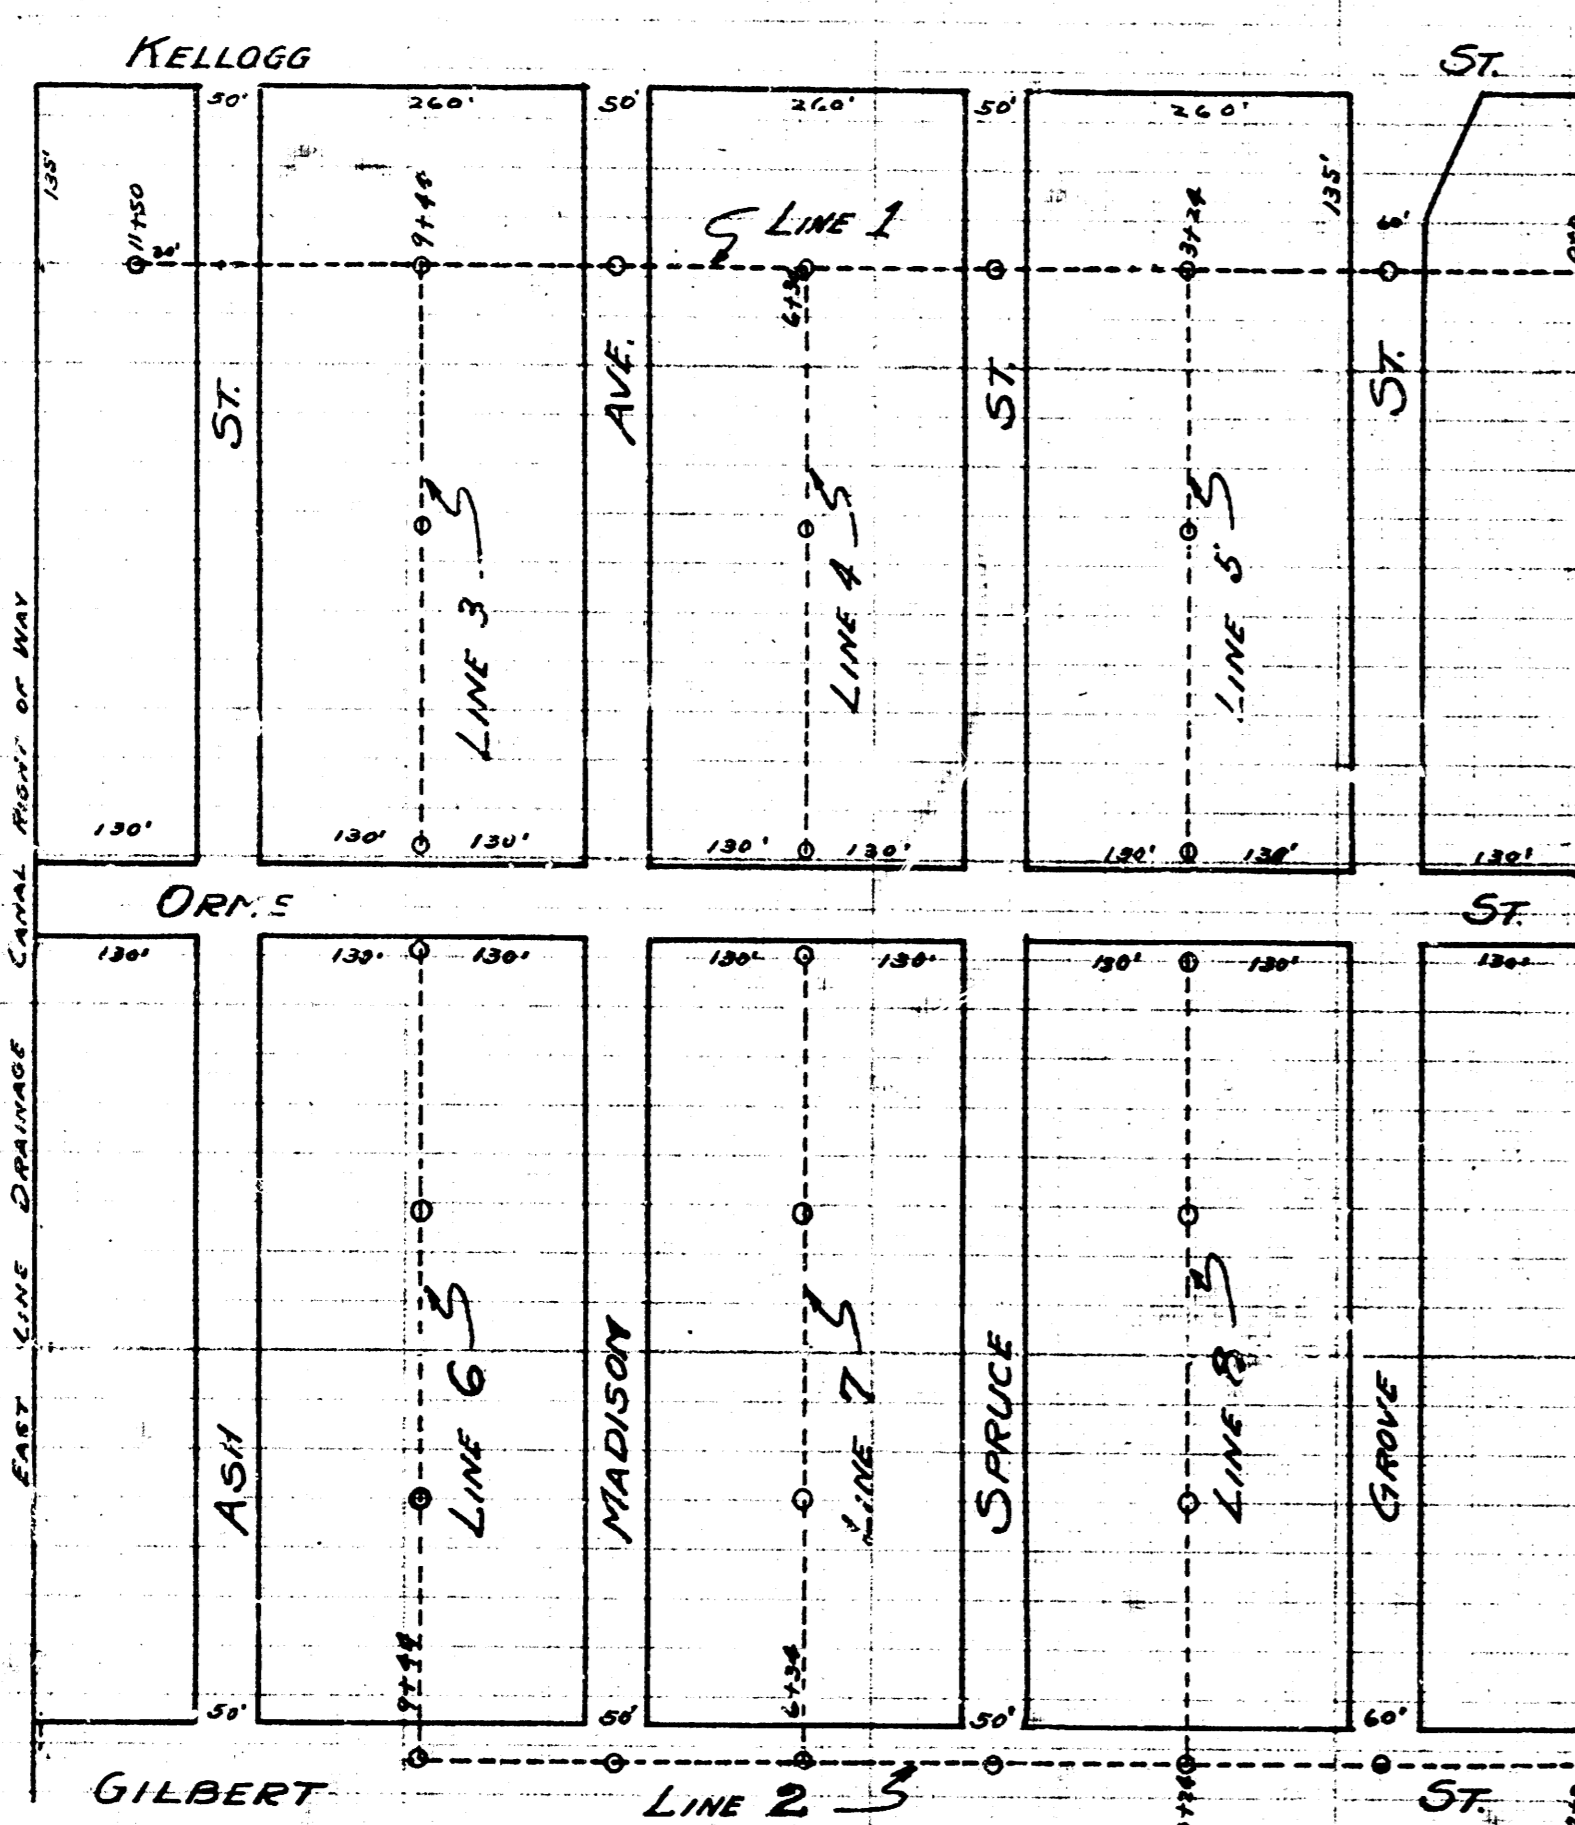 KELLOGG ST.
50' 260' 50' 260' 50' 260'
135'
135'
11+50
20'
9+44
LINE 1
6+34
3+24
60'
ST.
AVE.
ST.
ST.
LINE 3
LINE 4
LINE 5
130' 130' 130' 130' 130' 130' 130' 130'
ORME ST.
130' 130' 130' 130' 130' 130' 130' 130'
EAST LINE DRAINAGE CANAL RIGHT OF WAY
ASH
LINE 6
MADISON
LINE 7
SPRUCE
LINE 8
GROVE
9+44
6+34
50' 50' 50' 60'
GILBERT LINE 2 ST.